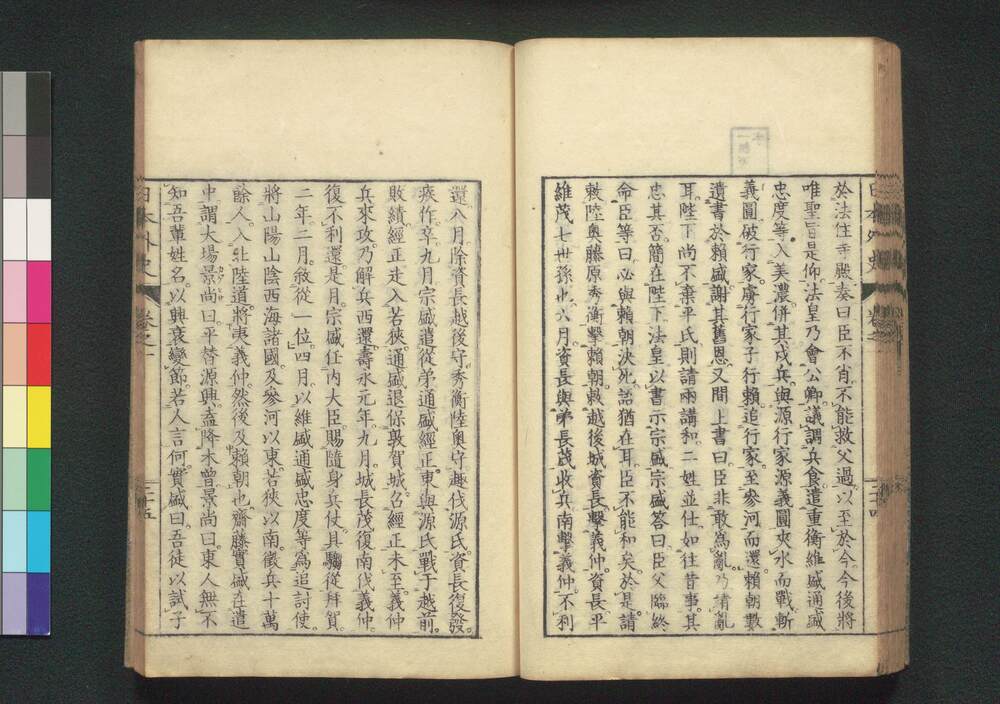 於法住寺殿奏曰臣不肖不能救父過以至於今今後將
唯聖旨是仰法皇乃會公卿議調兵食遣重衡維盛通盛
忠度等入美濃併其戍兵與源行家源義圓夾水而戰斬
義圓破行家虜行家子行賴追行家至參河而還賴朝數
遺書於賴盛謝其舊恩又間上書曰臣非敢為亂乃請亂
耳陛下尚不棄平氏則請兩講和二姓並仕如往昔事其
忠其否簡在陛下法皇以書示宗盛宗盛答曰臣父臨終
命臣等曰必與賴朝決死話猶在耳臣不能和矣於是請
敕陸奧藤原秀衡擊賴朝敕越後城資長擊義仲資長平
維茂七世孫也六月資長與弟長茂收兵南擊義仲不利
還八月除資長越後守秀衡陸奧守趣伐源氏資長復發
疾作卒九月宗盛遣從弟通盛經正東與源氏戰于越前
敗績經正走入若狹通盛退保敦賀城名經正未至義仲
兵來攻乃解兵西還壽永元年九月城長茂復南伐義仲
復不利還是月宗盛任內大臣賜隨身兵仗具騶從拜賀
二年二月敘從一位四月以維盛通盛忠度等為追討使
將山陽山陰西海諸國及參河以東若狹以南徵兵十萬
餘人入北陸道將夷義仲然後及賴朝也齋藤實盛在遣
中謂大場景尚曰平替源興盍降木曾景尚曰東人無不
知吾輩姓名以興衰變節若人言何實盛曰吾徒以試子
日本外史 卷之一 二十五